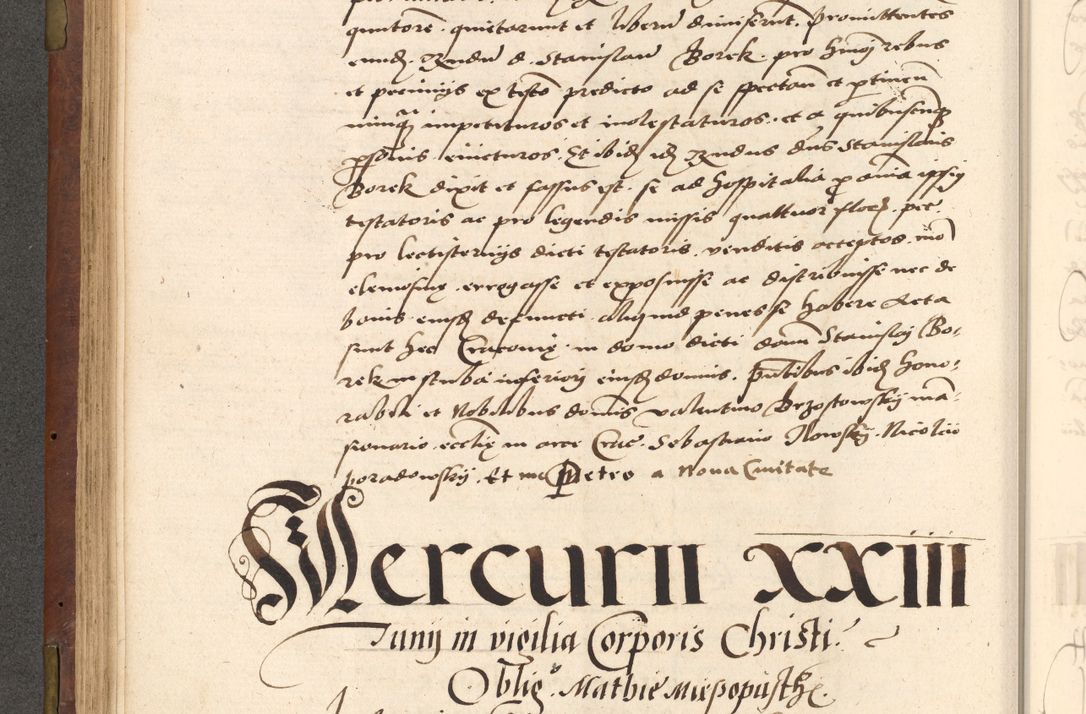 quittarunt et liberum dimiserunt. Promittentes
eundem Rndum d. Stanislaum Borek pro huiusmodi rebus
et pecuniis ex testo predicto ad se spectan et ptinen
nunquam impetituros et molestaturos. et a quibuscunque
psonis evicturos. Et ibidem idem Rndus dns Stanislaus
Borek dixit et fassus est. se ad hospitalia p ania ipsius
testatoris ac pro legendis missis quattuor floren. pec.
pro lectisterniis dicti testatoris venditis acceptos. in
elemosinę errogasse et exposuisse ac distribuisse nec de
bonis eiusdem defuncti aliquid penes se habere Acta
sunt hec Cracovię in domo dicti domini Stanislai Bo-
rek in stuba inferiori eiusdem domus. Pntibus ibidem hono-
rabili et Nobilibus dominis Valentino Brzostowskij man-
sionario ecclię in arce Crac. Sebastiano Ilowskij. Nicolao
poradowskij. Et me Petro a Nova Civitate
Mercurii xxiii
Iunij in vigilia Corporis Christi.
Oblig. Mathie Miepopusth.